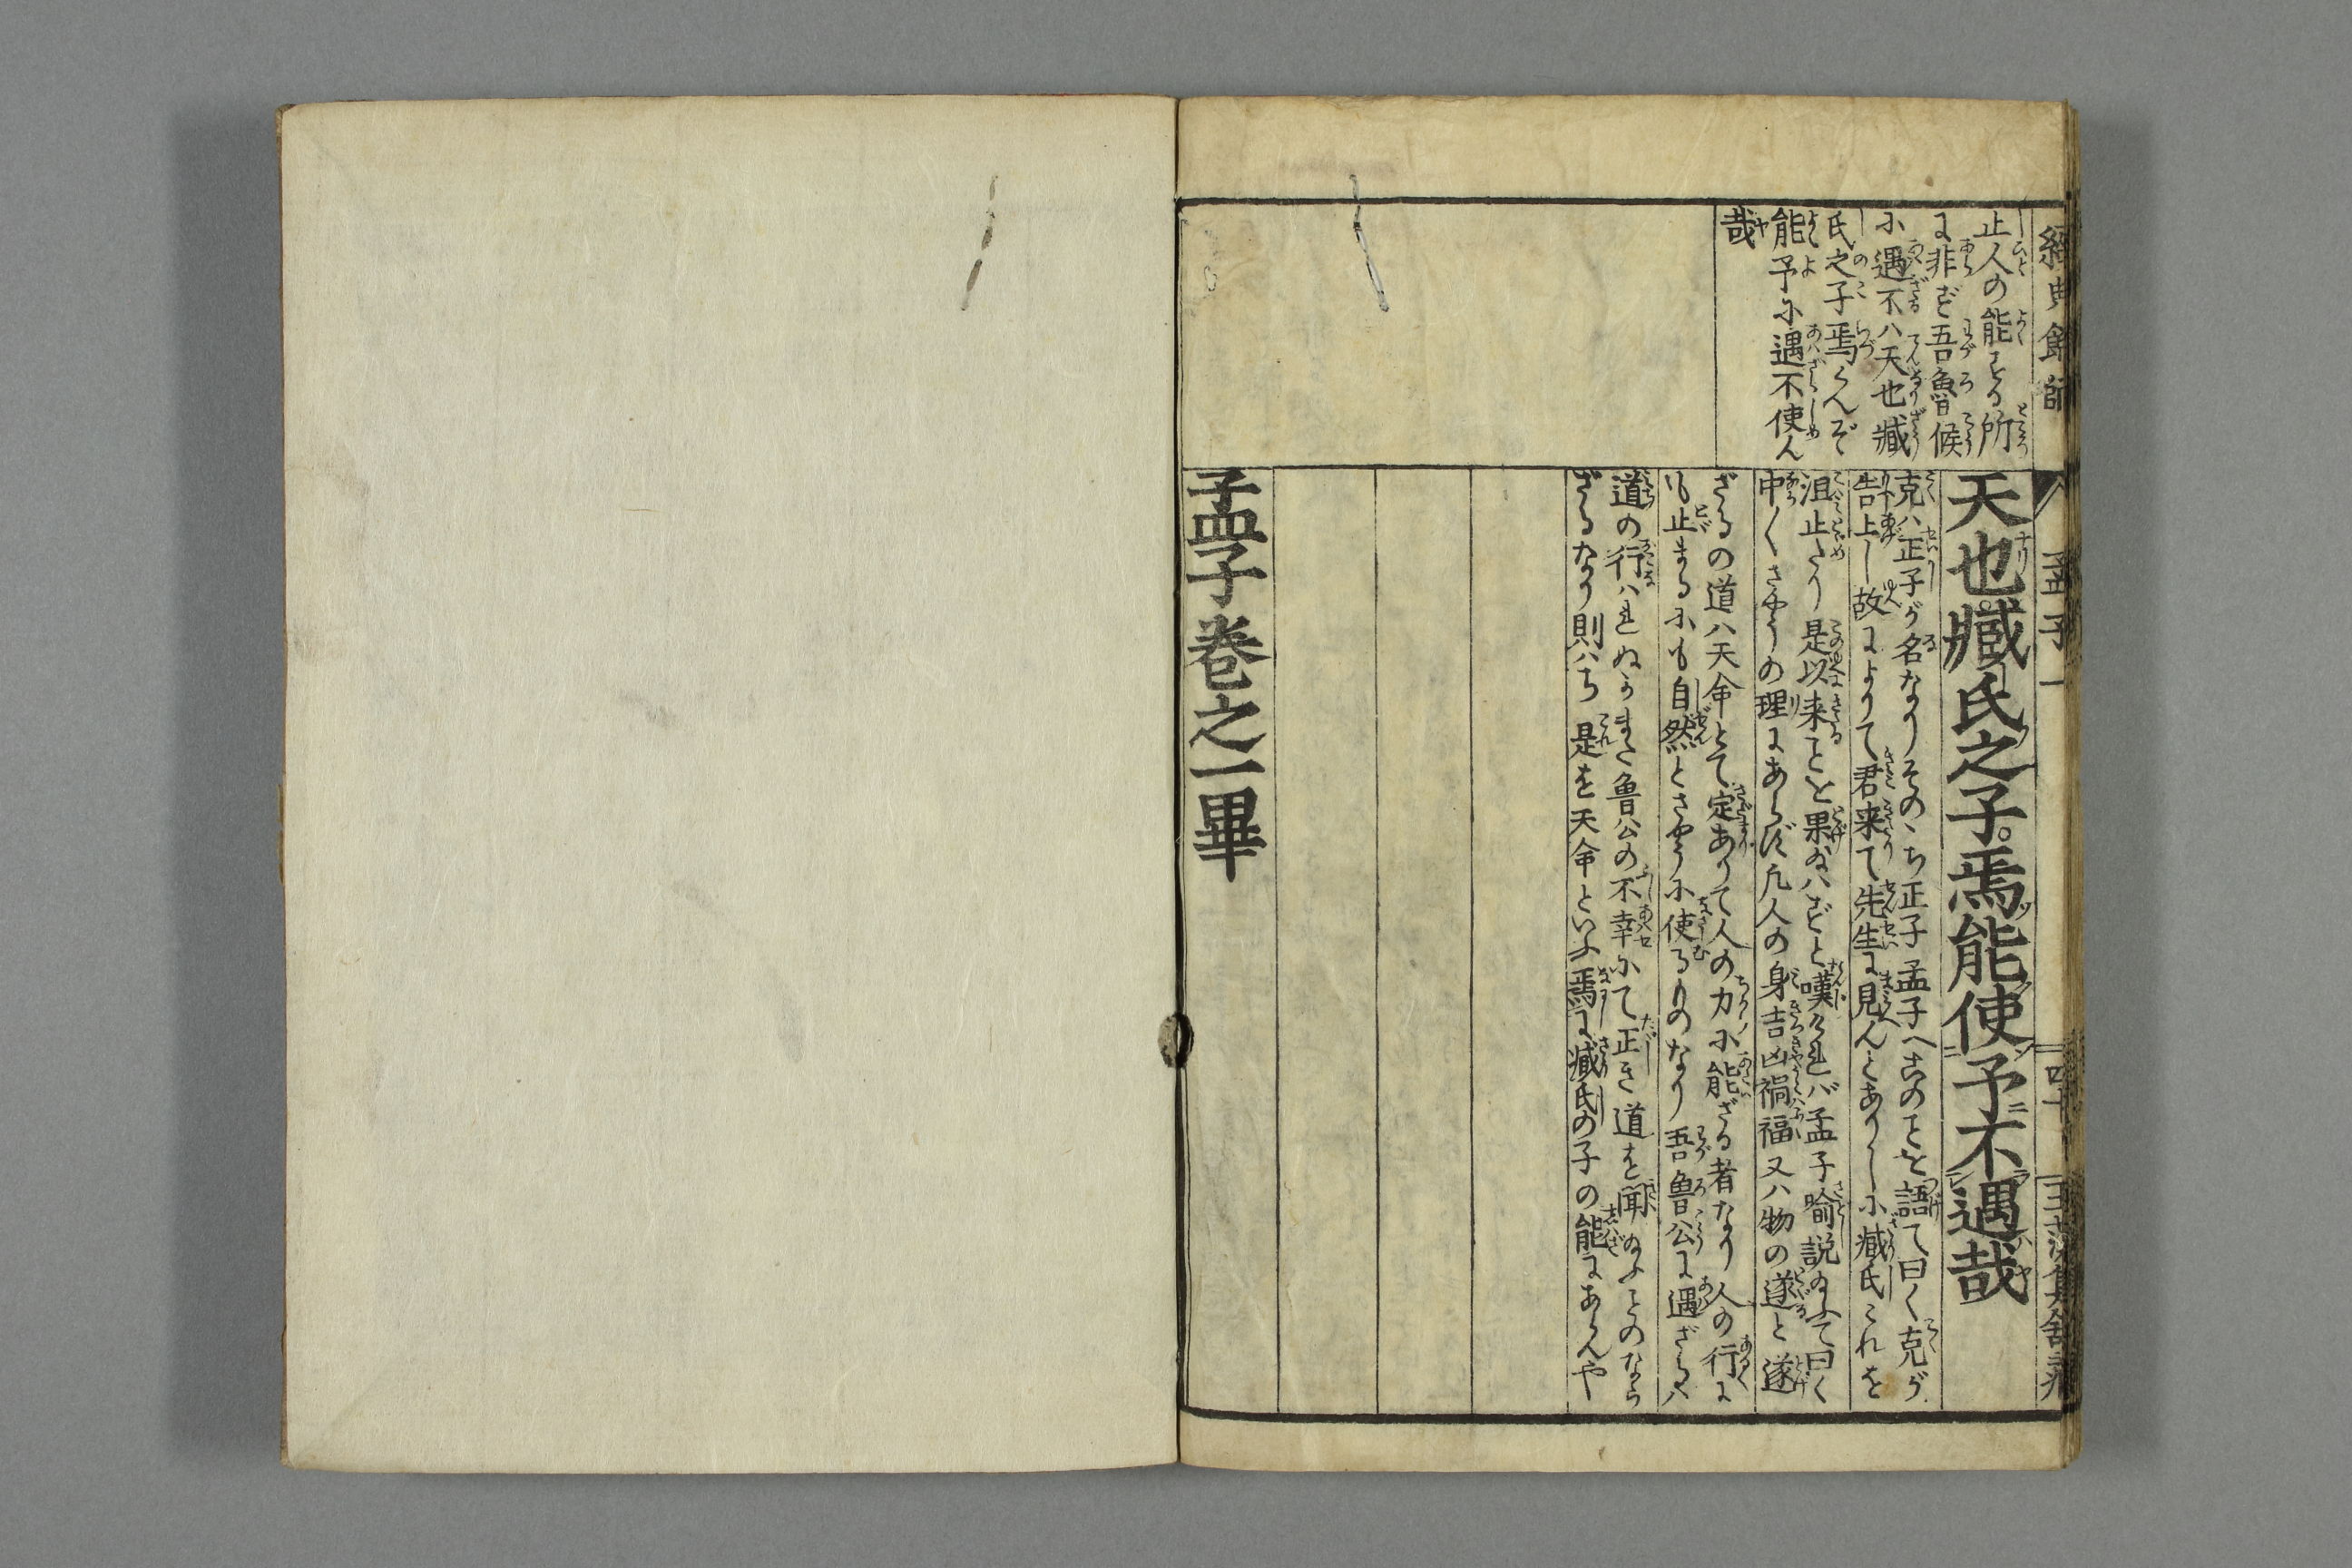 經典餘師
孟子一
四十
止人の能する所
に非ず吾魯侯
に遇不ハ天也臧
氏之子焉くんぞ
能予に遇不使ん
哉
天也臧氏之子。焉能使予不遇哉
克ハ正子が名なりそのゝち正子孟子へ此のことを語て曰く克が
告上し故によりて君来て先生に見んとありしに臧氏これを
沮止たり是以来ことを果給ハずと嘆ければ孟子喩説給ふて曰く
中〳〵さやうの理にあらず凡人の身吉凶禍福又ハ物の遂と遂
ざるの道ハ天命とて定ありて人の力に能ざる者なり人の行に
も止まるにも自然とさやうに使るものなり吾魯公に遇ざるハ
道の行ハれぬかまた魯公の不幸にて正き道を聞給ふことのなら
ざるなり則ハち是を天命といふ焉に臧氏の子の能にあらんや
孟子巻之一畢